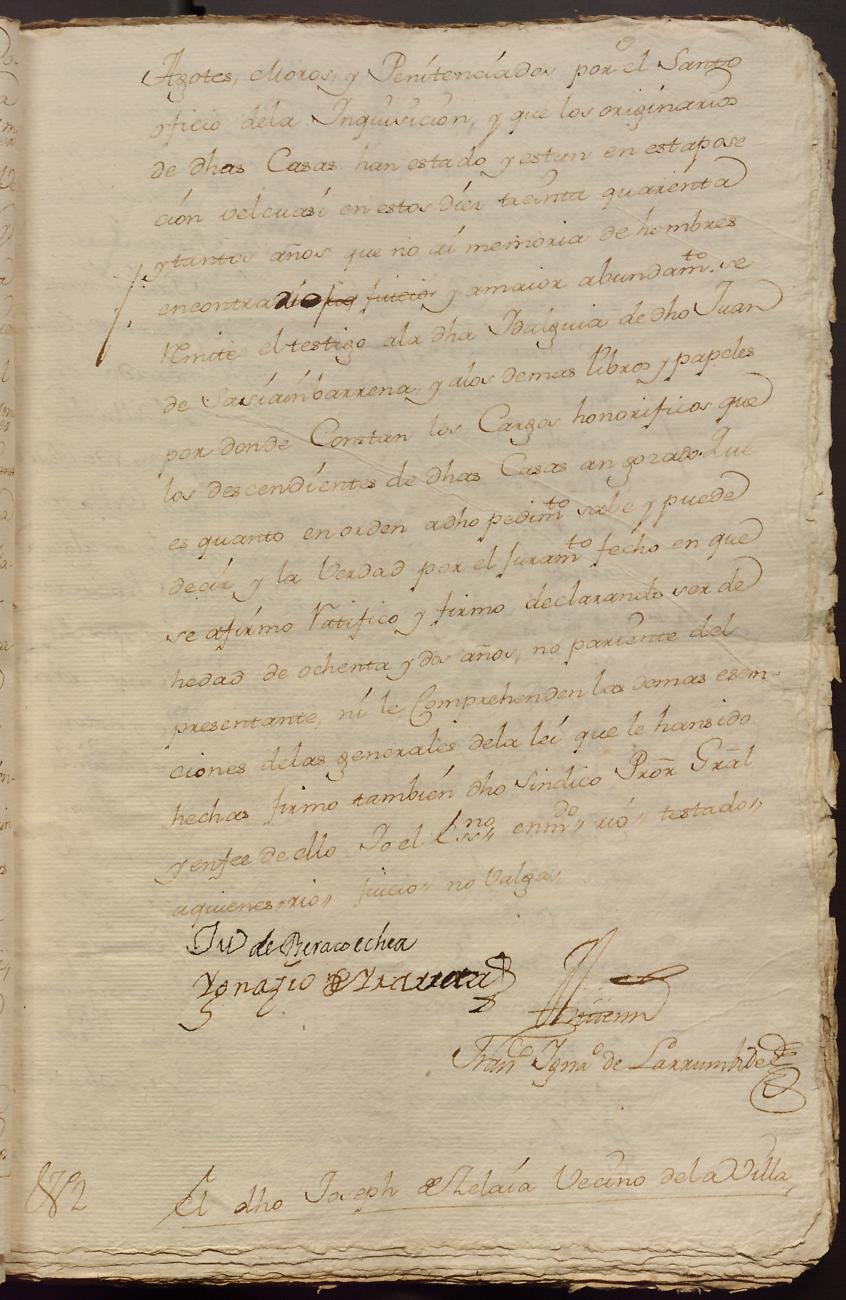 Agotes, Moros, y Penitenciados por el Santo
oficio dela Inquisicion, y que los originarios
de dhas Casas han estado y estan en esta pose
cion velcuasi en estos diez treinta quarenta
y tantos años que no ai memoria de hombres
encontrario y amaior abundamto. se
remite el testigo ala dha Idalguia de dho Juan
de y alos demas libros y papeles
por donde Constan los Cargos honorificos que
los descendientes de dhas Casas an gozado Que
es quanto en orden adho pedimto sabe y puede
decir y la Verdad por el juramto fecho en que
se afirmo Ratifico y firmo declarando ser de
hedad de ochenta y dos años, no pariente del
presentante, ni le Comprehenden las demas esem-
ciones delas generales dela lei que le hansido
hechas firmo también dho Sindico Pror Gral
yenfee de ello Io el Esno,, enmdo,, rió,, testado,,
aquienes,, rio,, juicio,, no Valga,,
Ju de Beracoechea
Ygnazio de Yrarreta
Franco Ignao de Larrumbide
El dho Joseph de Zelaía Vecino dela Villa,